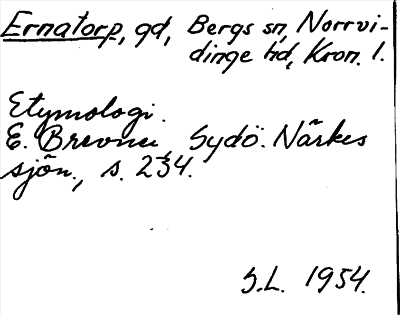 Ernatorp, gd, Bergs sn, Norrvi-
dinge hd, Kron. l.
Etymologi.
E. Brevner Sydö. Närkes
sjön., s. 234.
S.L. 1954.